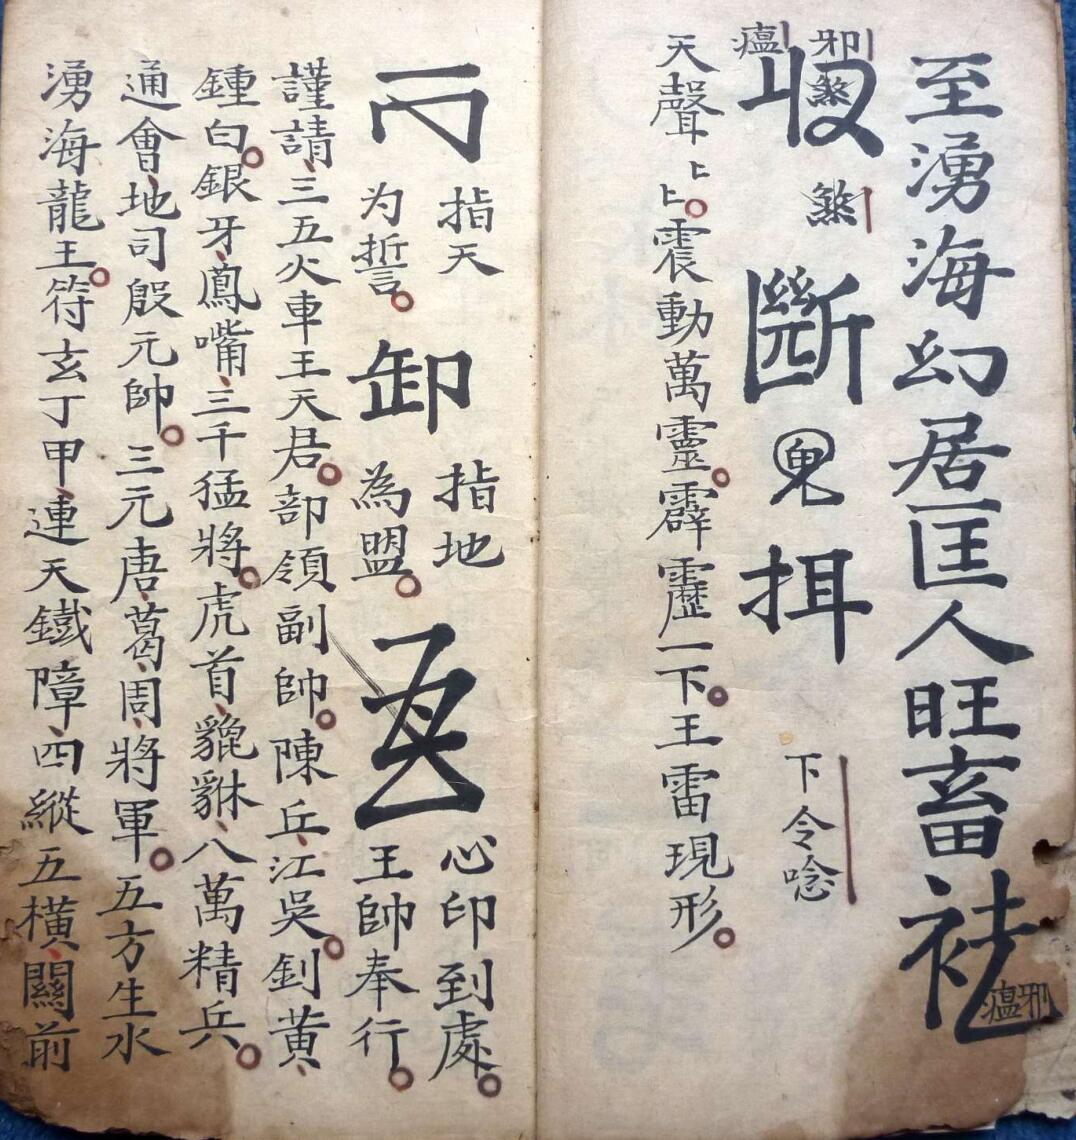 至湧海幻居匡人旺畜祛
邪瘟
邪煞
瘟
收
煞
斷
鬼
挕
下令唸
天聲〻〻震動萬靈霹靂一下王雷現形
指天
为誓
卸
指地
為盟
心印到處
王帥奉行
謹請三五火車王天君部領副帥陳兵江吳釗黃
鍾白銀牙鳳嘴三千猛將虎首貔貅八萬精兵
通會地司殷元帥三元唐葛周將軍五方生水
湧海龍王符玄丁甲連天鐵障四縱五橫關前